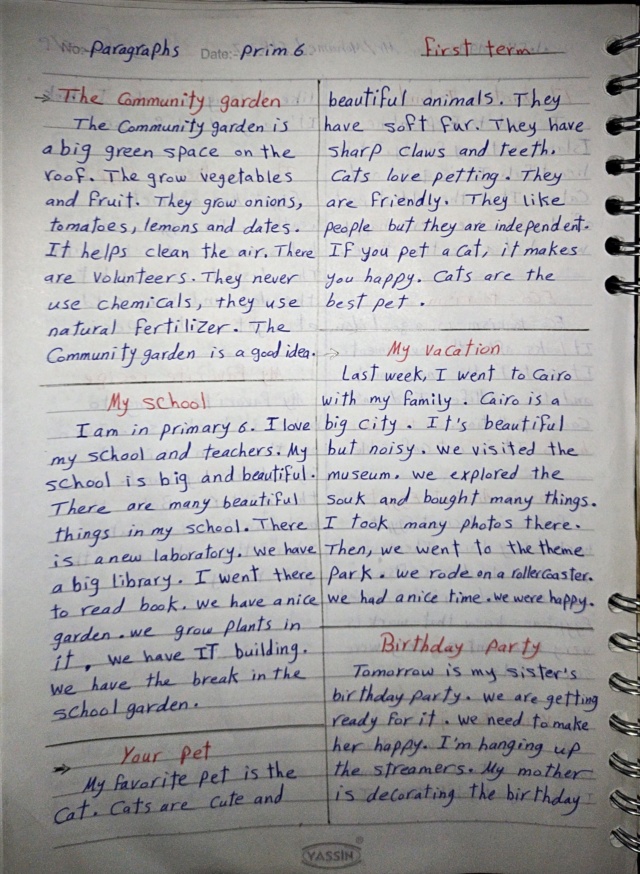 No: Paragraphs Date: Prim 6 First term
The Community garden
The Community garden is
a big green space on the
roof. The grow vegetables
and fruit. They grow onions,
tomatoes, lemons and dates.
It helps clean the air. There
are volunteers. They never
use chemicals, they use
natural fertilizer. The
Community garden is a good idea.
My school
I am in primary 6. I love
my school and teachers. My
school is big and beautiful.
There are many beautiful
things in my school. There
is a new laboratory. we have
a big library. I went there
to read book. we have a nice
garden. we grow plants in
it, we have IT building.
we have the break in the
school garden.
Your pet
My favorite pet is the
Cat. Cats are cute and
beautiful animals. They
have soft fur. They have
sharp claws and teeth.
Cats love petting. They
are friendly. They like
people but they are independent.
If you pet a cat, it makes
you happy. Cats are the
best pet.
My vacation
Last week, I went to Cairo
with my family. Cairo is a
big city. It's beautiful
but noisy. we visited the
museum. we explored the
souk and bought many things.
I took many photos there.
Then, we went to the theme
park. we rode on a rollercoaster.
we had a nice time. we were happy.
Birthday party
Tomorrow is my sister's
birthday party. we are getting
ready for it. we need to make
her happy. I'm hanging up
the streamers. My mother
is decorating the birthday
YASSIN